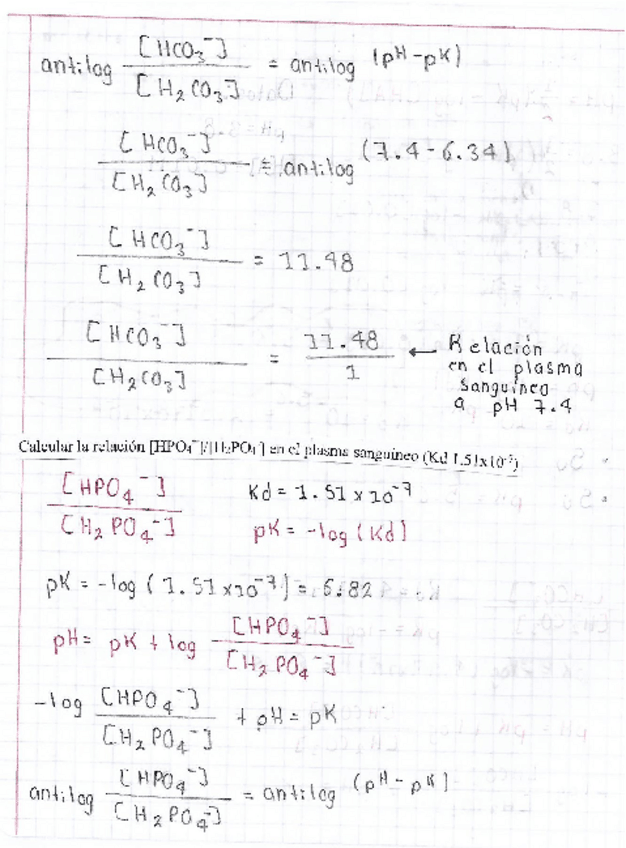 antilog [HCO₃⁻] / [H₂CO₃] = antilog (pH - pK)
[HCO₃⁻] / [H₂CO₃] = antilog (7.4 - 6.34)
[HCO₃⁻] / [H₂CO₃] = 11.48
[HCO₃⁻] / [H₂CO₃] = 11.48 / 1 ← Relación
en el plasma
sanguíneo
a pH 7.4
Calcular la relación [HPO₄⁻]/[H₂PO₄⁻] en el plasma sanguineo (Kd 1.51x10⁻⁷)
[HPO₄⁻] / [H₂PO₄⁻] Kd = 1.51 x 10⁻⁷
pK = -log (Kd)
pK = -log (1.51 x10⁻⁷) = 6.82
pH = pK + log [HPO₄⁻] / [H₂PO₄⁻]
-log [HPO₄⁻] / [H₂PO₄⁻] + pH = pK
antilog [HPO₄⁻] / [H₂PO₄⁻] = antilog (pH - pK)